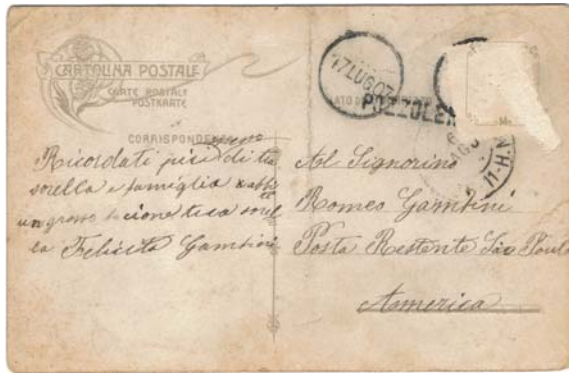 CARTOLINA POSTALE
CARTE POSTALE
POSTKARTE
CORRISPONDENZA
Ricordati più di tua
sorella e famiglia
un grosso bacione tua sorel
la Felicita Gambini
17 LUG 07
POZZOLE
AGO
11-H-N
Al Signorino
Romeo Gambini
Posta Restente São Paulo
America